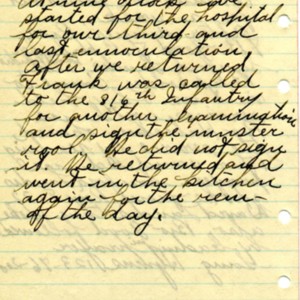 At nine oclock we
started for the hospital
for our third and
last innoculation.
After we returned
Frank was called
to the 816th Infantry
for another examination
and sign the muster
rool. He did not sign
it. He returned and
went in the kitchen
again for the rem-
of the day.